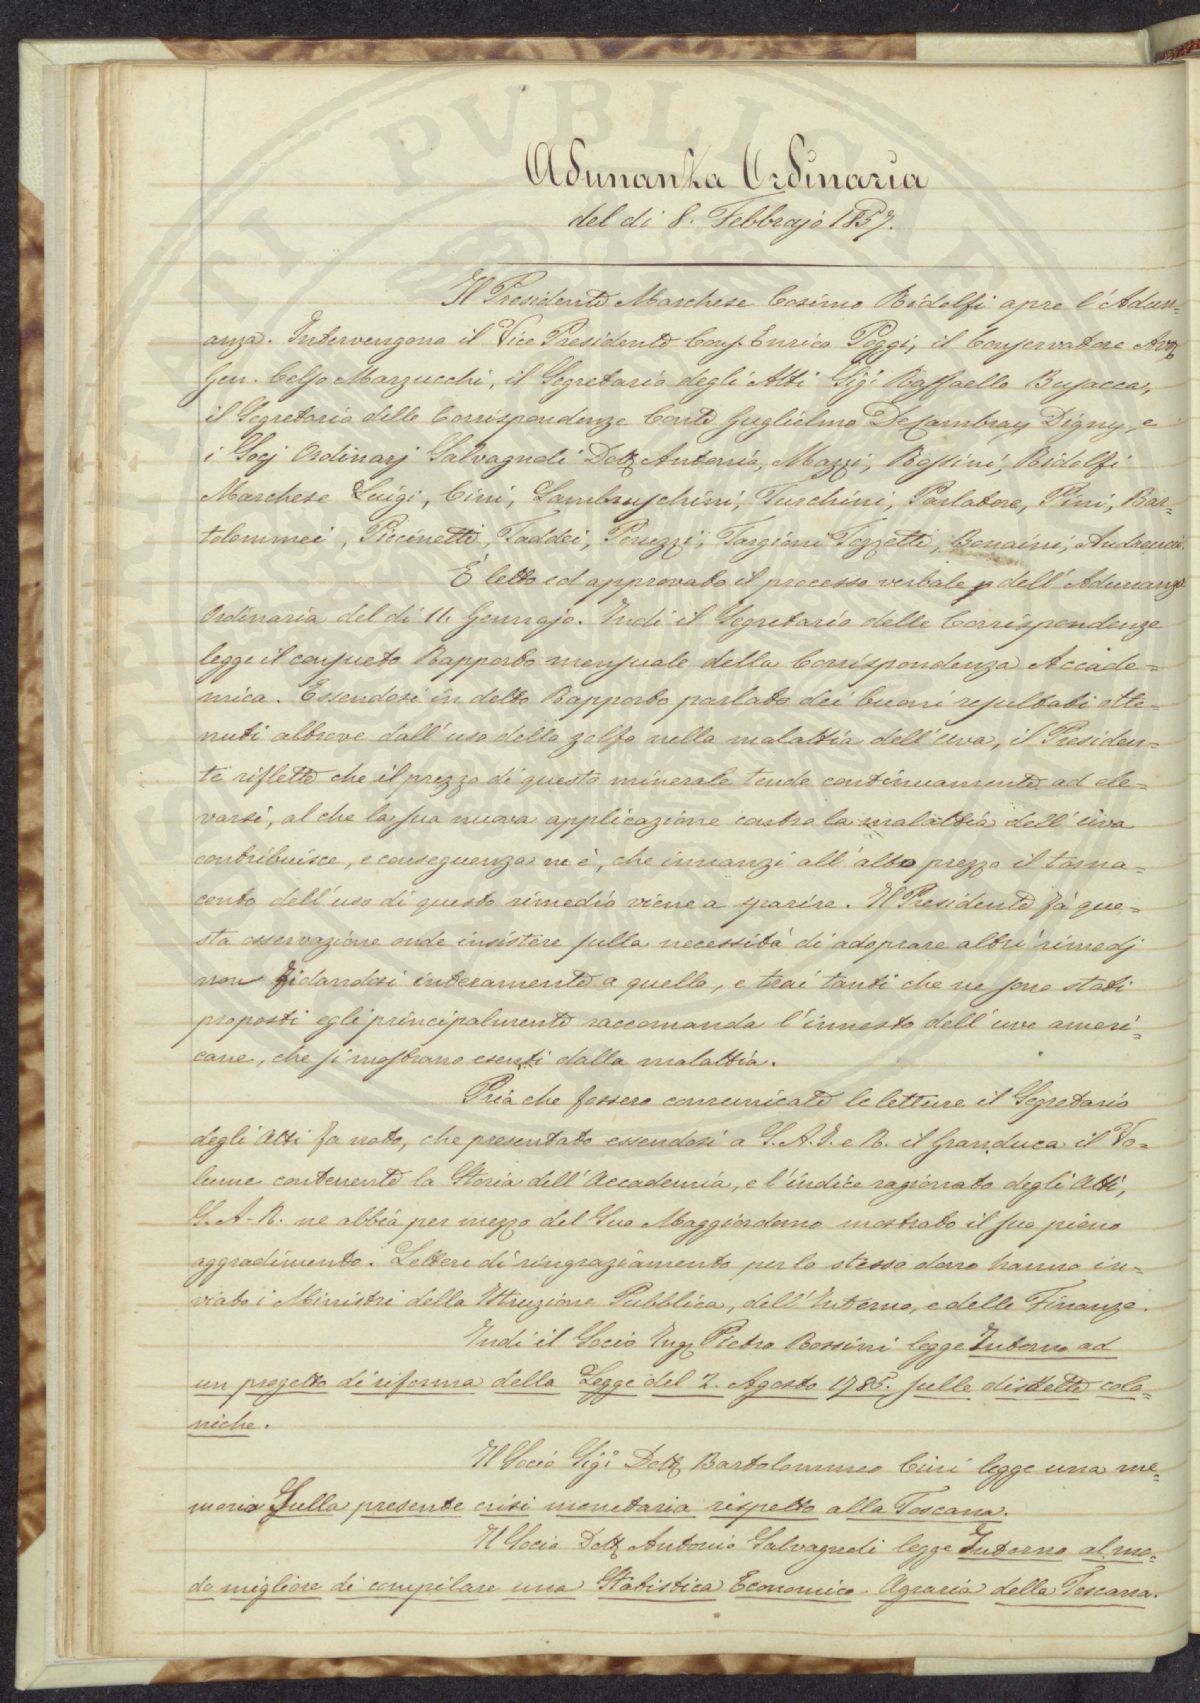 Adunanza Ordinaria
del di 8. Febbrajo 1857.
Il Presidente Marchese Cosimo Ridolfi apre l'Adun=
anza. Intervengono il Vice Presidente Conf. Enrico Poggi, il Conservatore Avv.
Gen. Celso Marzucchi, il Segretario degli Atti Sig. Raffaello Busacca,
il Segretario delle Corrispondenze Conte Guglielmo De Cambray Digny, e
i Socj Ordinarj Salvagnoli Dott. Antonio, Mazzi, Rossini, Ridolfi
Marchese Luigi, Cini, Lambruschini, Turchini, Parlatore, Pini, Bar=
tolommei, Piccinetti, Taddei, Peruzzi, Targioni Tozzetti, Bonaini, Andreucci.
È letto ed approvato il processo verbale dell'Adunanza
Ordinaria del di 11. Gennajo. Indi il Segretario delle Corrispondenze
legge il consueto Rapporto mensuale della Corrispondenza Accade=
mica. Essendosi in detto Rapporto parlato dei buoni resultati otte=
nuti altrove dall'uso dello zolfo nella malattia dell'uva, il Presiden=
te riflette che il prezzo di questo minerale tende continuamente ad ele=
varsi, al che la sua nuova applicazione contro la malattia dell'uva
contribuisce, e conseguenza ne è, che innanzi all'alto prezzo il torna=
conto dell'uso di questo rimedio viene a sparire. Il Presidente fa que=
sta osservazione onde insistere sulla necessità di adoprare altri rimedj
non fidandosi interamente a quello, e trai tanti che ne sono stati
proposti egli principalmente raccomanda l'innesto dell'uve ameri=
cane, che si mostrano esenti dalla malattia.
Pria che fossero comunicate le letture il Segretario
degli Atti fa noto, che presentato essendosi a S. A. I. e R. il Granduca il Vo=
lume contenente la Storia dell'Accademia, e l'indice ragionato degli Atti,
S. A. R. ne abbia per mezzo del Suo Maggiordomo mostrato il suo pieno
aggradimento. Lettere di ringraziamento per lo stesso dono hanno in=
viato i Ministri della Istruzione Pubblica, dell'Interno, e delle Finanze.
Indi il Socio Ing. Pietro Rossini legge Intorno ad
un progetto di riforma della Legge del 2. Agosto 1785. sulle disdette colo=
niche.
Il Socio Sig. Dott. Bartolommeo Cini legge una me=
moria Sulla presente crisi monetaria rispetto alla Toscana.
Il Socio Dott. Antonio Salvagnoli legge Intorno al mo=
do migliore di compilare una Statistica Economico-Agraria della Toscana.